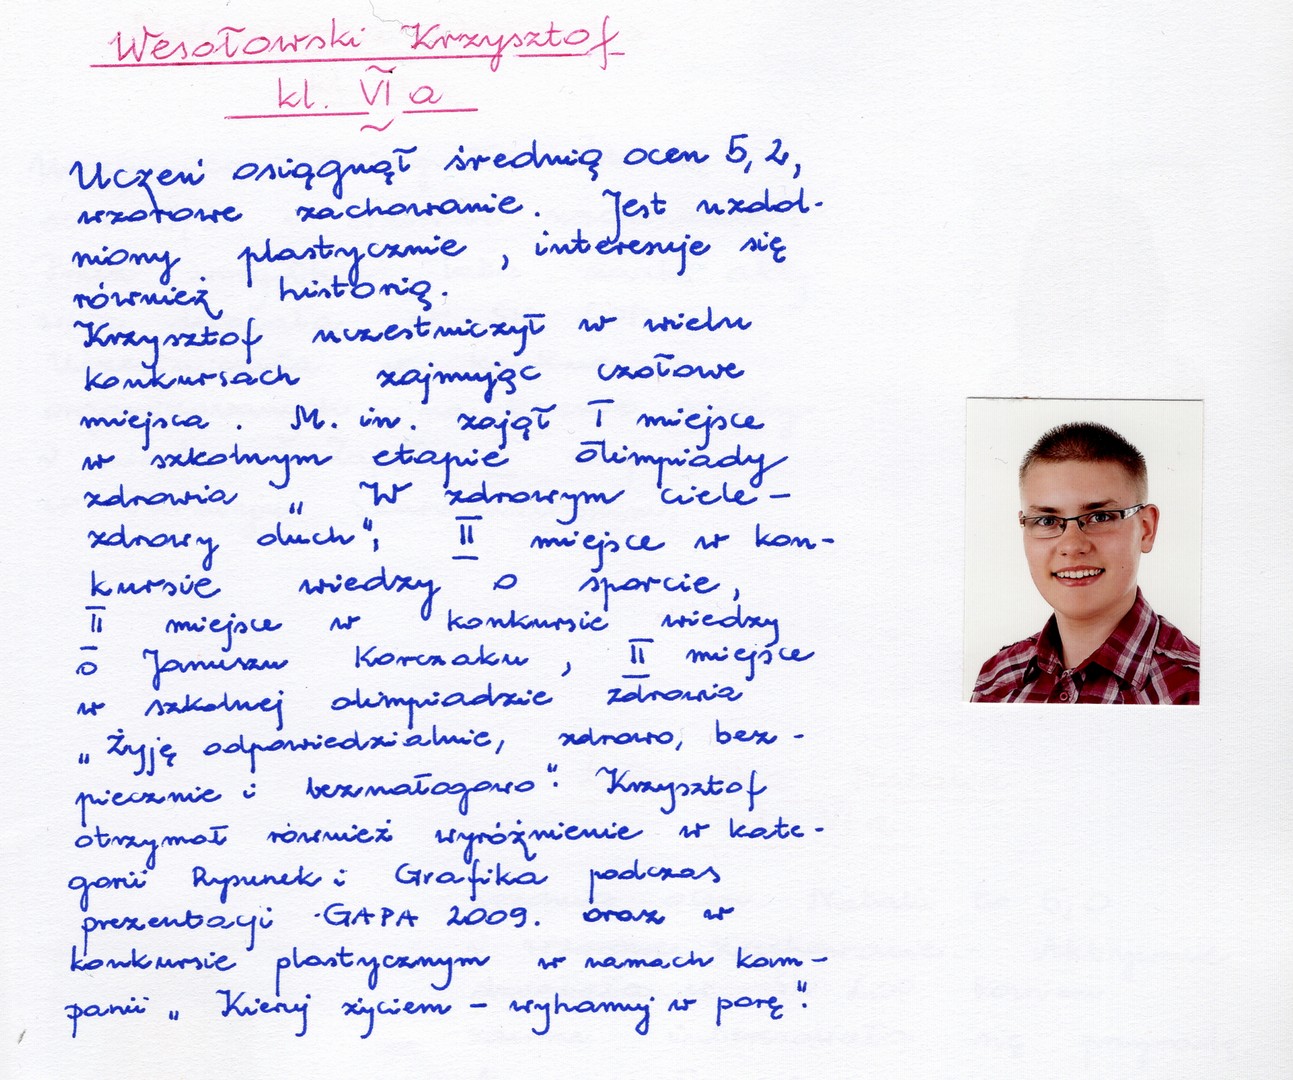 Wesołowski Krzysztof
kl. VI a
Uczeń osiągnął średnią ocen 5,2,
wzorowe zachowanie. Jest uzdol-
niony plastycznie, interesuje się
również historią.
Krzysztof uczestniczył w wielu
konkursach zajmując czołowe
miejsca. M. in. zajął I miejsce
w szkolnym etapie olimpiady
zdrowia „W zdrowym ciele -
zdrowy duch", II miejsce w kon-
kursie wiedzy o sporcie,
II miejsce w konkursie wiedzy
o Januszu Korczaku, II miejsce
w szkolnej olimpiadzie zdrowia
„Żyję odpowiedzialnie, zdrowo, bez-
piecznie i beznałogowo". Krzysztof
otrzymał również wyróżnienie w kate-
gorii Rysunek i Grafika podczas
prezentacji GAPA 2009. oraz w
konkursie plastycznym w ramach kam-
panii „Kieruj życiem - wyhamuj w porę".